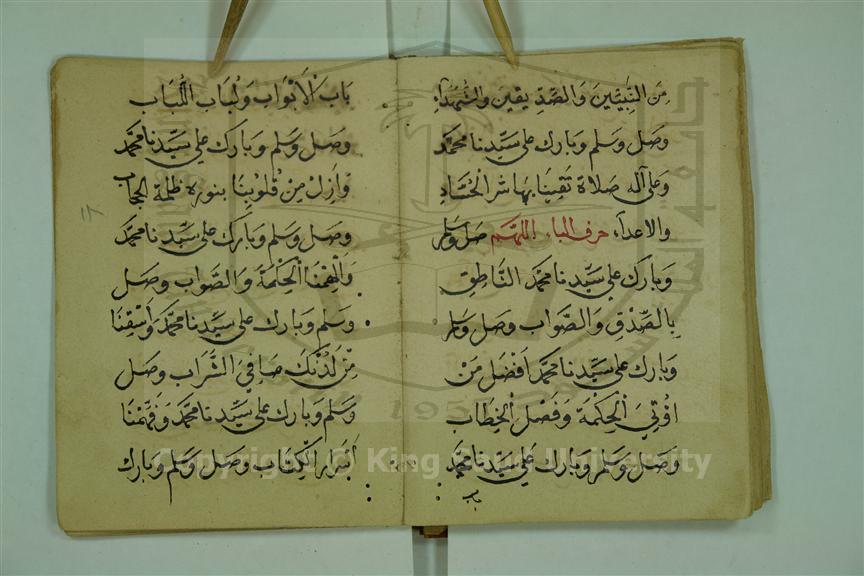 مِنَ النَّبِيّينَ وَالصِّدِّيقينَ وَالشُّهَدَآءِ
وَصَلِ وَسَلِم وَبَارِك عَلى سَيِّدِنا محمَّد
وَعلى آله صَلاةً تَقِينَا بِهَا شر الحُسَّادِ
والاعداءِ حرف الباء اللهُمَّ صَل وَسَلِم
وَبَارِكَ عَلى سَيِّدِنا محمَّد النَّاطِقِ
بِالصِّدْقِ وَالصَّوَاب وَصَل وَسَلم
وَبَارِك عَلى سَيِّدِنا محمَّد اَفْضَل مَنْ
اوُتِيَ الْحِكْمَةَ وَفَصْلَ الْخِطَاب
وَصَل وَسَلم وَبَارِك عَلى سَيِّدِنَا محمَّد
باب
بَابِ الْاَبْوَابِ وَلُبَابِ اللُّبَاب
وَصَلِ وَسَلم وَبَارك عَلى سَيِّدِنا محمَّد
وَاَزِلْ مِنْ قُلُوبِنَا بنوره ظلمة الحجاب
وَصَل وَسَلم وَبَارِكَ عَلى سَيِّدِنا محمَّد
وَاَلْهِمْنَا الْحِكْمَةَ وَالصَّوَاب وَصَل
وَسَلم وَبَارك عَلى سَيِّدِنا محمَّد وَاَسْقِنَا
مِنْ لَدُنْكَ صَافِيَ الشَّرَاب وَصَل
وَسَلم وَبَارك عَلى سَيِّدِنا محمَّد وَفَهِّمْنَا
اَسْرَارَ الْكِتَاب وَصَل وَسَلم وَبَارك
١٨
Copyright © King Saud University
195